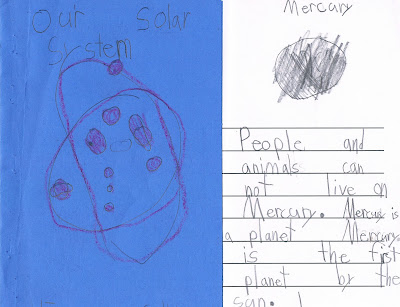 Our Solar
System
Mercury
People and
animals can
not live on
Mercury. Mercury is
a planet Mercury
is the first
planet by the
sun. 1